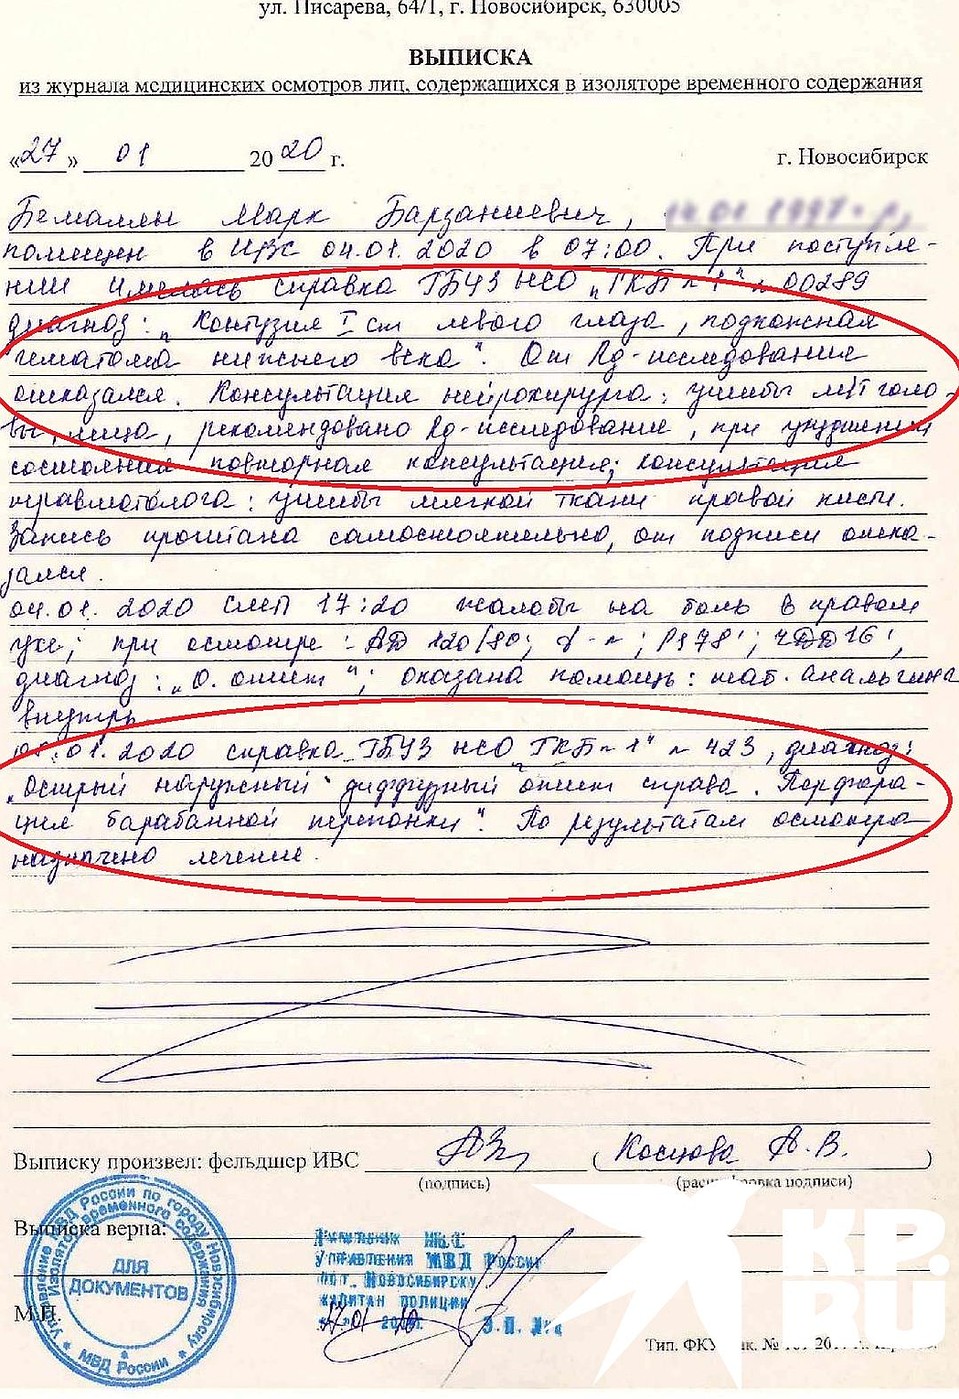 ул. Писарева, 64/1, г. Новосибирск, 630005
ВЫПИСКА
из журнала медицинских осмотров лиц, содержащихся в изоляторе временного содержания
«27» 01 2020 г. г. Новосибирск
Бемалян Марк Барзаниевич,
помещен в ИВС 04.01.2020 в 07:00. При поступле-
нии имелась справка ГБУЗ НСО „ГКБ № 1" № 00289
диагноз: „Контузия I ст левого глаза, подкожная
гематома нижнего века". От Rg-исследования
отказался. Консультация нейрохирурга: ушибы м/т голо-
вы, лица, рекомендовано Rg-исследование, при ухудшении
состояния повторная консультация; консультация
травматолога: ушибы мягкой ткани правой кисти.
Запись прочитана самостоятельно, от подписи отка-
зался.
04.01.2020 СМП 17:20 жалобы на боль в правом
ухе; при осмотре: АД 120/80; t - n; Ps 78'; ЧДД 16';
диагноз: „О. отит"; оказана помощь: таб. анальгина
внутрь
01.2020 справка ГБУЗ НСО „ГКБ № 1" № 423, диагноз:
„Острый наружный диффузный отит справа. Перфора-
ция барабанной перепонки". По результатам осмотра
назначено лечение.
Выписку произвел: фельдшер ИВС ( А.В. )
(подпись) (расшифровка подписи)
Выписка верна:
Управление МВД России по городу Новосибирску
Изолятор временного содержания
ДЛЯ
ДОКУМЕНТОВ
МВД России
УПРАВЛЕНИЯ МВД РОССИИ
ПО Г. НОВОСИБИРСКУ
КАПИТАН ПОЛИЦИИ
М.П.
Тип. ФКУ
KP.RU